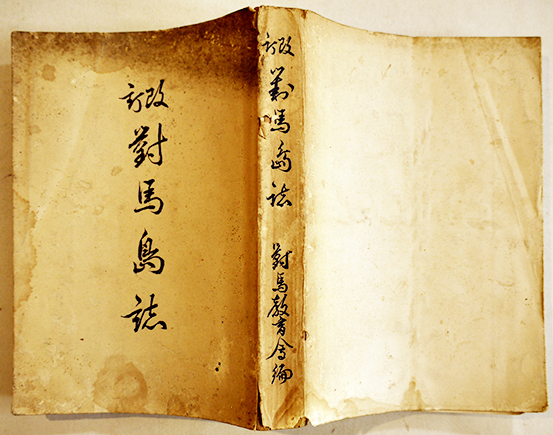 改訂
對馬島誌
改訂 對馬島誌 對馬教育會編